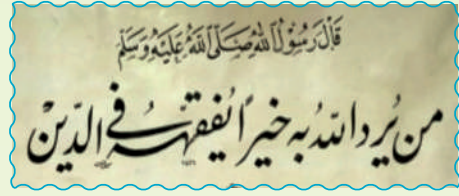 قَالَ رَسُوْلُ اللهِ صَلَّى اللهُ عَلَيْهِ وَسَلَّمَ
من يُرِدِ اللهُ بِهِ خيراً يُفَقِّهْهُ في الدِّيْنِ